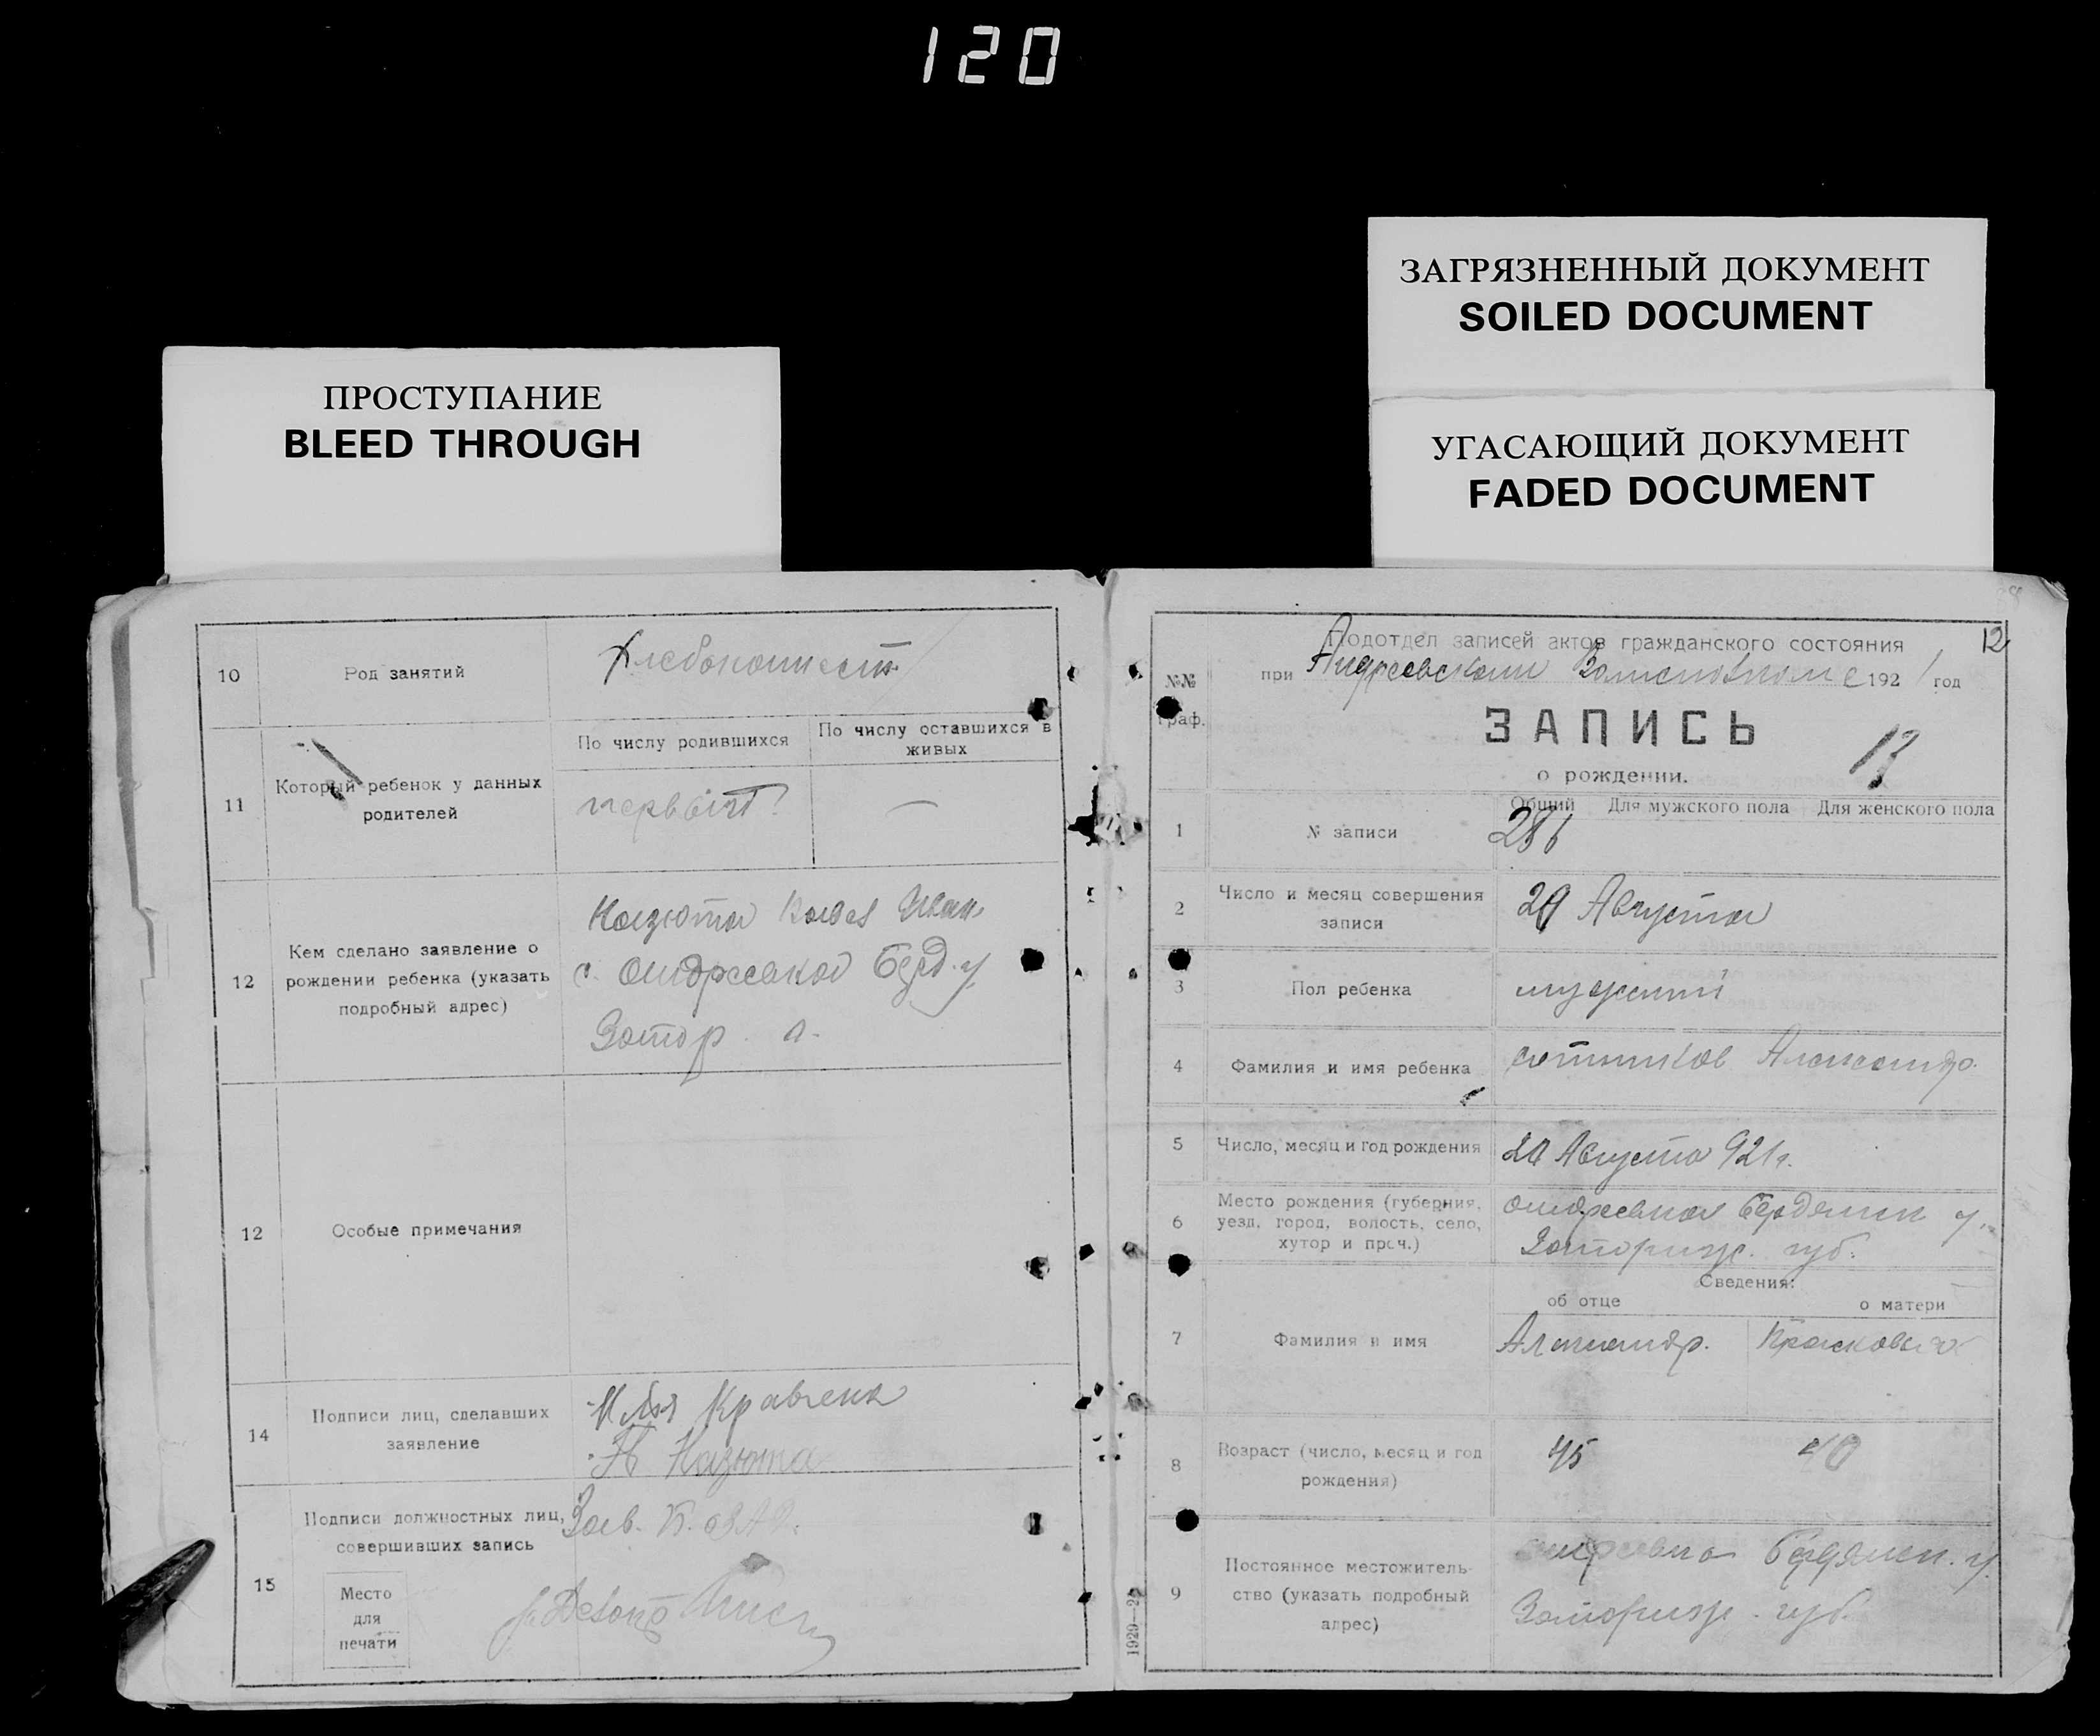 120
ЗАГРЯЗНЕННЫЙ ДОКУМЕНТ
SOILED DOCUMENT
УГАСАЮЩИЙ ДОКУМЕНТ
FADED DOCUMENT
ПРОСТУПАНИЕ
BLEED THROUGH
10 Род занятий
11 Который ребенок у данных родителей
По числу родившихся
По числу оставшихся в живых
первый
—
12 Кем сделано заявление о
рождении ребенка (указать
подробный адрес)
Казюта Иван
с. Андреевка Берд. у.
Запор. г.
12 Особые примечания
14 Подписи лиц, сделавших
заявление
Илья Кравченк
Казюта
15 Подписи должностных лиц,
совершивших запись
Зав.
Место
для
печати
12
Подотдел записей актов гражданского состояния
№№
граф.
при Андреевском 1921 год
ЗАПИСЬ
13
о рождении.
Общий Для мужского пола Для женского пола
1 № записи 286
2 Число и месяц совершения
записи
29 Августа
3 Пол ребенка мужский
4 Фамилия и имя ребенка Сотников Александр.
5 Число, месяц и год рождения 20 Августа 921 г.
6 Место рождения (губерния,
уезд, город, волость, село,
хутор и проч.)
Андреевка Бердянск у.
Запориж. губ.
Сведения:
об отце о матери
7 Фамилия и имя Александр. Прасковья
8 Возраст (число, месяц и год
рождения)
45 40
9 Постоянное местожитель-
ство (указать подробный
адрес)
Андреевка Бердянск. у.
Запориж. губ.